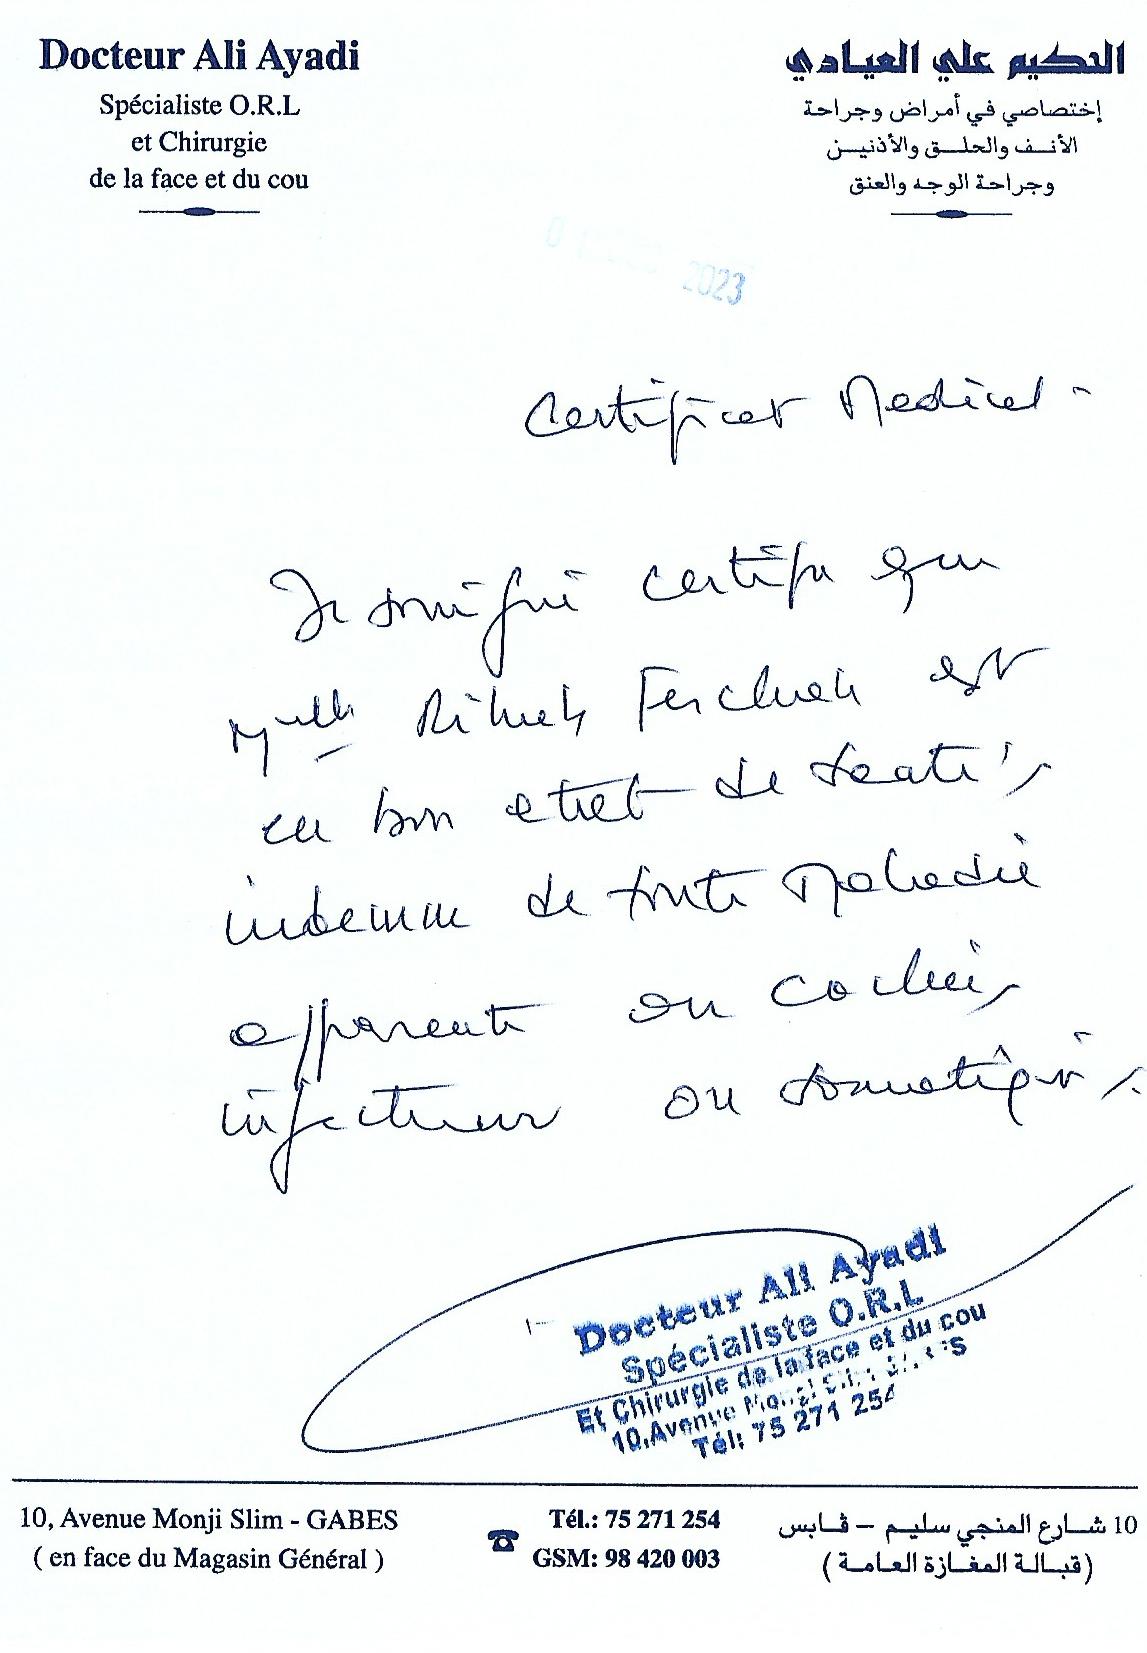 Docteur Ali Ayadi
Spécialiste O.R.L
et Chirurgie
de la face et du cou
الحكيم علي العيادي
إختصاصي في أمراض وجراحة
الأنف والحلق والأذنين
وجراحة الوجه والعنق
2023
Certificat Medical
Je soussigné certifie que
Mlle Rihab est
en bon etat de santé,
indemne de toute Maladie
apparente ou cachée,
infectieuse ou
Docteur Ali Ayadi
Spécialiste O.R.L
Et Chirurgie de la face et du cou
10, Avenue
Tél: 75 271 254
10, Avenue Monji Slim - GABES
( en face du Magasin Général )
Tél.: 75 271 254
GSM: 98 420 003
10 شارع المنجي سليم – قابس
(قبالة المغازة العامة)